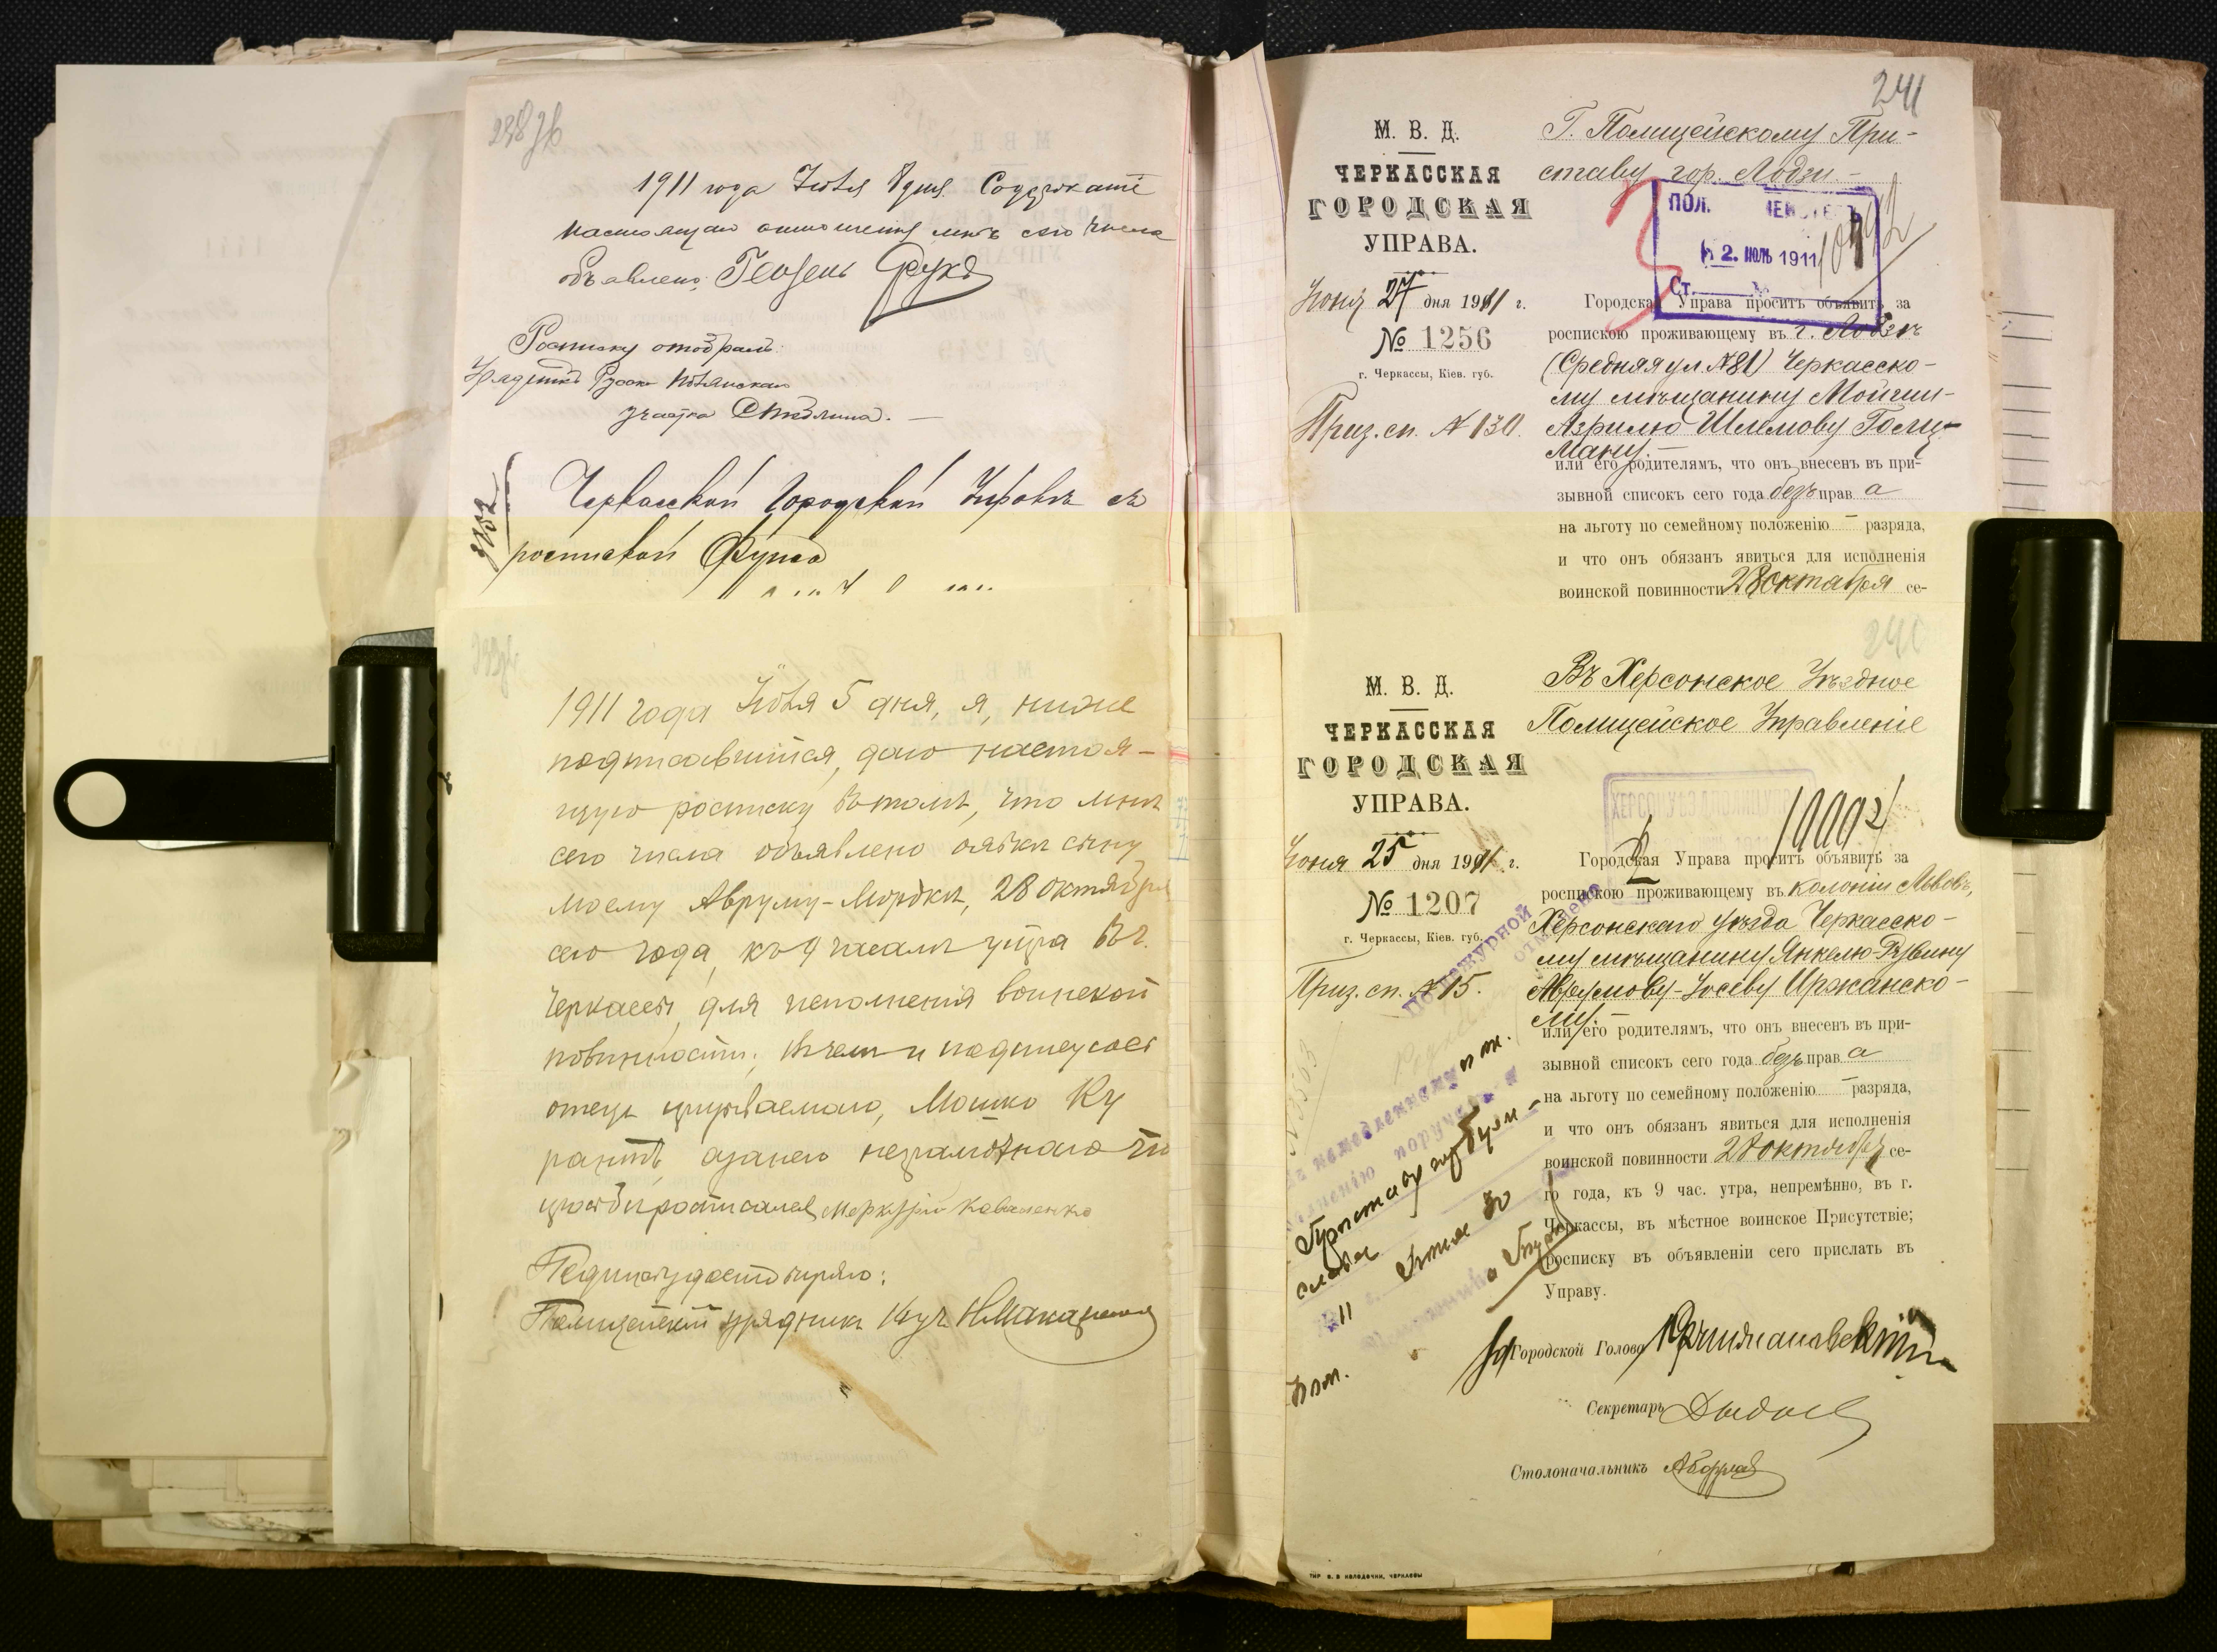 238 зв
1911 года Іюля 8 дня. Содержаніе
настоящаго отношенія мнѣ сего числа
объявлено:
Росписку отобралъ:
Урядникъ
участка
Черкасской Городской Управѣ съ
роспиской
1911 года Іюля 5 дня, я, ниже
подписавшійся, даю настоя-
щую росписку въ томъ, что мнѣ
сего числа объявлено о явкѣ сыну
моему Авруму-Мордкѣ, 28 октября
сего года, къ 9 часамъ утра въ г.
Черкассы, для исполненія воинской
повинности; въ чемъ и подписуюсь
отецъ призываемаго, Мошко Ку
рантъ, а за него неграмотнаго по
просьбѣ росписался Меркурій Коваленко
Подпись удостовѣряю:
Полицейскій урядникъ
241
М. В. Д.
ЧЕРКАССКАЯ
ГОРОДСКАЯ
УПРАВА.
Іюня 27 дня 1911 г.
№ 1256
г. Черкассы, Кіев. губ.
Приз. сп. № 130.
Г. Полицейскому При-
ставу гор. Лодзи.-
2. ІЮЛЬ 1911
Ст.
Городская Управа проситъ объявить за
роспискою проживающему въ г. Лодзь
(Средняя ул. № 81) Черкасско-
му мѣщанину Мойши-
Азрилю Шлемову Голц-
ману.-
или его родителямъ, что онъ внесенъ въ при-
зывной списокъ сего года безъ права
на льготу по семейному положенію — разряда,
и что онъ обязанъ явиться для исполненія
воинской повинности 28 октября се-
240
М. В. Д.
ЧЕРКАССКАЯ
ГОРОДСКАЯ
УПРАВА.
Іюня 25 дня 1911 г.
№ 1207
г. Черкассы, Кіев. губ.
Приз. сп. № 15.
Въ Херсонское Уѣздное
Полицейское Управленіе
Городская Управа проситъ объявить за
роспискою проживающему въ колоніи Львовѣ,
Херсонскаго уѣзда Черкасско-
му мѣщанину Янкелю-Рувину
Аврумову-Іосеву Иржанско-
му.-
или его родителямъ, что онъ внесенъ въ при-
зывной списокъ сего года безъ права
на льготу по семейному положенію — разряда,
и что онъ обязанъ явиться для исполненія
воинской повинности 28 октября се-
го года, къ 9 час. утра, непремѣнно, въ г.
Черкассы, въ мѣстное воинское Присутствіе;
росписку въ объявленіи сего прислать въ
Управу.
Городской Голова
Секретарь
Столоначальникъ